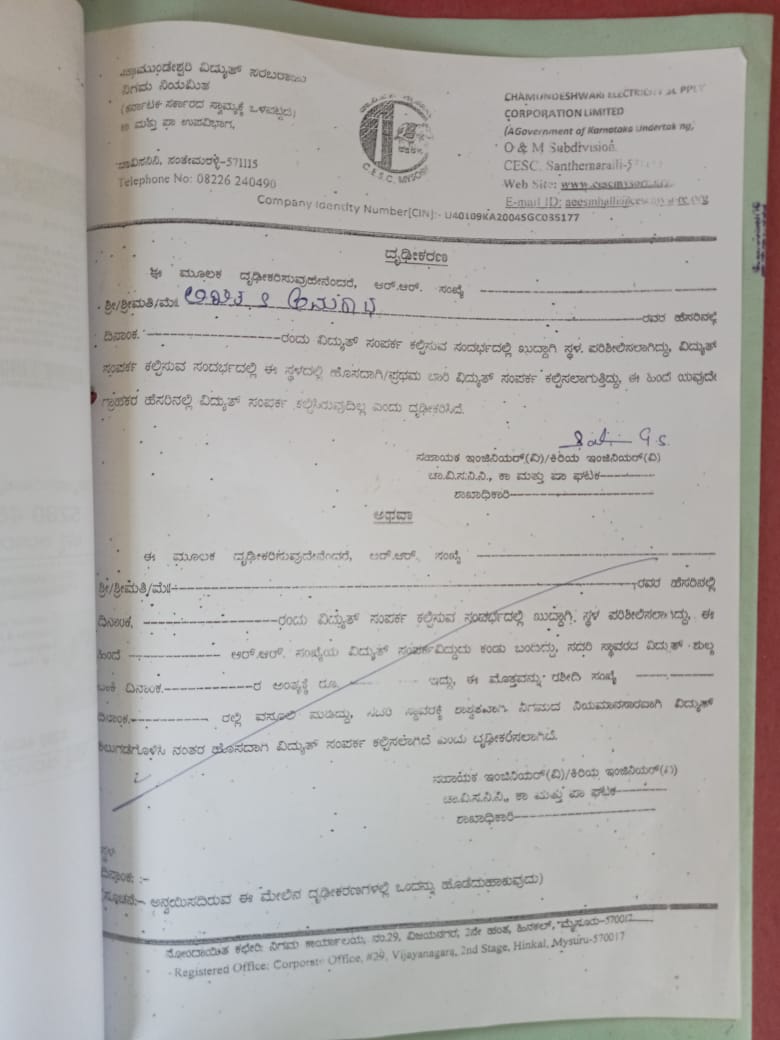 ಚಾಮುಂಡೇಶ್ವರಿ ವಿದ್ಯುತ್ ಸರಬರಾಜು
ನಿಗಮ ನಿಯಮಿತ
(ಕರ್ನಾಟಕ ಸರ್ಕಾರದ ಸ್ವಾಮ್ಯಕ್ಕೆ ಒಳಪಟ್ಟದ)
ಕಾ ಮತ್ತು ಪಾ ಉಪವಿಭಾಗ,
ಚಾವಿಸನಿನಿ, ಸಂತೇಮರಳ್ಳಿ-571115
Telephone No: 08226 240490
C.E.S.C. MYSORE
CHAMUNDESHWARI ELECTRICITY SUPPLY
CORPORATION LIMITED
(AGovernment of Karnataka Undertaking,
O & M Subdivision.
CESC. Santhemaralli-571115
Web Site: www.cescmysore.org
E-mail ID:
Company Identity Number[CIN]:- U40109KA2004SGC035177
ದೃಢೀಕರಣ
ಈ ಮೂಲಕ ದೃಢೀಕರಿಸುವುದೇನೆಂದರೆ, ಆರ್.ಆರ್. ಸಂಖ್ಯೆ
ಶ್ರೀ/ಶ್ರೀಮತಿ/ಮೆ॥ ರವರ ಹೆಸರಿನಲ್ಲಿ
ದಿನಾಂಕ. ರಂದು ವಿದ್ಯುತ್ ಸಂಪರ್ಕ ಕಲ್ಪಿಸುವ ಸಂದರ್ಭದಲ್ಲಿ ಖುದ್ದಾಗಿ ಸ್ಥಳ ಪರಿಶೀಲಿಸಲಾಗಿದ್ದು, ವಿದ್ಯುತ್
ಸಂಪರ್ಕ ಕಲ್ಪಿಸುವ ಸಂದರ್ಭದಲ್ಲಿ ಈ ಸ್ಥಳದಲ್ಲಿ ಹೊಸದಾಗಿ/ಪ್ರಥಮ ಬಾರಿ ವಿದ್ಯುತ್ ಸಂಪರ್ಕ ಕಲ್ಪಿಸಲಾಗುತ್ತಿದ್ದು, ಈ ಹಿಂದೆ ಯಾವುದೇ
ಗ್ರಾಹಕರ ಹೆಸರಿನಲ್ಲಿ ವಿದ್ಯುತ್ ಸಂಪರ್ಕ ಕಲ್ಪಿಸಿರುವುದಿಲ್ಲ ಎಂದು ದೃಢೀಕರಿಸಿದೆ.
ಸಹಾಯಕ ಇಂಜಿನಿಯರ್(ವಿ)/ಕಿರಿಯ ಇಂಜಿನಿಯರ್(ವಿ)
ಚಾ.ವಿ.ಸ.ನಿ.ನಿ., ಕಾ ಮತ್ತು ಪಾ ಘಟಕ
ಶಾಖಾಧಿಕಾರಿ
ಅಥವಾ
ಈ ಮೂಲಕ ದೃಢೀಕರಿಸುವುದೇನೆಂದರೆ, ಆರ್.ಆರ್. ಸಂಖ್ಯೆ
ಶ್ರೀ/ಶ್ರೀಮತಿ/ಮೆ॥ ರವರ ಹೆಸರಿನಲ್ಲಿ
ದಿನಾಂಕ, ರಂದು ವಿದ್ಯುತ್ ಸಂಪರ್ಕ ಕಲ್ಪಿಸುವ ಸಂದರ್ಭದಲ್ಲಿ ಖುದ್ದಾಗಿ ಸ್ಥಳ ಪರಿಶೀಲಿಸಲಾಗಿದ್ದು, ಈ
ಹಿಂದೆ ಆರ್.ಆರ್. ಸಂಖ್ಯೆಯ ವಿದ್ಯುತ್ ಸಂಪರ್ಕವಿದ್ದುದು ಕಂಡು ಬಂದಿದ್ದು, ಸದರಿ ಸ್ಥಾವರದ ವಿದ್ಯುತ್ ಶುಲ್ಕ
ಬಾಕಿ ದಿನಾಂಕ. ರ ಅಂತ್ಯಕ್ಕೆ ರೂ. ಇದ್ದು, ಈ ಮೊತ್ತವನ್ನು ರಶೀದಿ ಸಂಖ್ಯೆ
ದಿನಾಂಕ. ರಲ್ಲಿ ವಸೂಲಿ ಮಾಡಿದ್ದು, ಸದರಿ ಸ್ಥಾವರಕ್ಕೆ ಶಾಶ್ವತವಾಗಿ ನಿಗಮದ ನಿಯಮಾನುಸಾರವಾಗಿ ವಿದ್ಯುತ್
ಬಿಲುಗಡೆಗೊಳಿಸಿ ನಂತರ ಹೊಸದಾಗಿ ವಿದ್ಯುತ್ ಸಂಪರ್ಕ ಕಲ್ಪಿಸಲಾಗಿದೆ ಎಂದು ದೃಢೀಕರಿಸಲಾಗಿದೆ.
ಸಹಾಯಕ ಇಂಜಿನಿಯರ್(ವಿ)/ಕಿರಿಯ ಇಂಜಿನಿಯರ್(ವಿ)
ಚಾ.ವಿ.ಸ.ನಿ.ನಿ., ಕಾ ಮತ್ತು ಪಾ ಘಟಕ
ಶಾಖಾಧಿಕಾರಿ
ಸ್ಥಳ
ದಿನಾಂಕ: :-
(ಸೂಚನೆ:- ಅನ್ವಯಿಸದಿರುವ ಈ ಮೇಲಿನ ದೃಢೀಕರಣಗಳಲ್ಲಿ ಒಂದನ್ನು ಹೊಡೆದುಹಾಕುವುದು)
ನೋಂದಾಯಿತ ಕಛೇರಿ: ನಿಗಮ ಕಾರ್ಯಾಲಯ, ನಂ.29, ವಿಜಯನಗರ, 2ನೇ ಹಂತ, ಹಿನಕಲ್, ಮೈಸೂರು-570017
Registered Office: Corporate Office, #29, Vijayanagara, 2nd Stage, Hinkal, Mysuru-570017